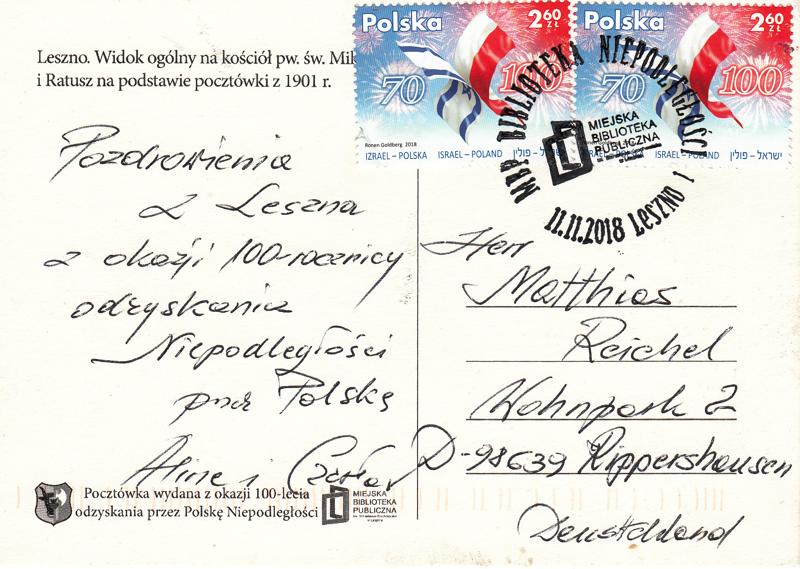 Leszno. Widok ogólny na kościół pw. św. Mik
i Ratusz na podstawie pocztówki z 1901 r.
Polska 2,60 ZŁ
70 100
Ronen Goldberg 2018
IZRAEL – POLSKA ISRAEL – POLAND ישראל – פולין
Polska 2,60 ZŁ
70 100
ISRAEL – POLAND ישראל – פולין
MBP BIBLIOTEKA NIEPODLEGŁOŚCI
MIEJSKA
BIBLIOTEKA
PUBLICZNA
11.11.2018 LESZNO 1
Pozdrowienia
z Leszna
z okazji 100-rocznicy
odzyskania
Niepodległości
przez Polskę
Alina i Czesław
Herr
Matthias
Reichel
Wohnpark 2
D-98639 Rippershausen
Deutschland
Pocztówka wydana z okazji 100-lecia
odzyskania przez Polskę Niepodległości
MIEJSKA
BIBLIOTEKA
PUBLICZNA